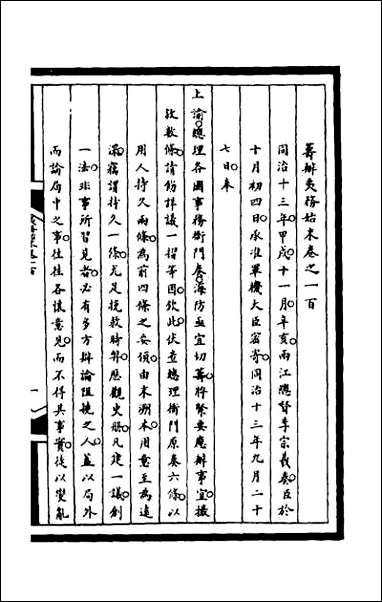 籌辦夷務始末卷之一百
同治十三年甲戌十一月辛亥兩江總督李宗羲奏臣於
十月初四日承准軍機大臣密寄同治十三年九月二十
七日奉
上諭總理各國事務衙門奏海防亟宜切籌將緊要應辦事宜撮
敘數條請飭詳議一摺等因欽此伏查總理衙門原奏六條以
用人持久兩條為前四條之要領由末溯本用意至為遠
竊謂持久一條尤足挽救時弊歷觀史冊凡建一議創
一法非事所習見者必有多方辯論阻撓之人蓋以局外
而論局中之事往往各懷意見而不得其事實徒以變亂